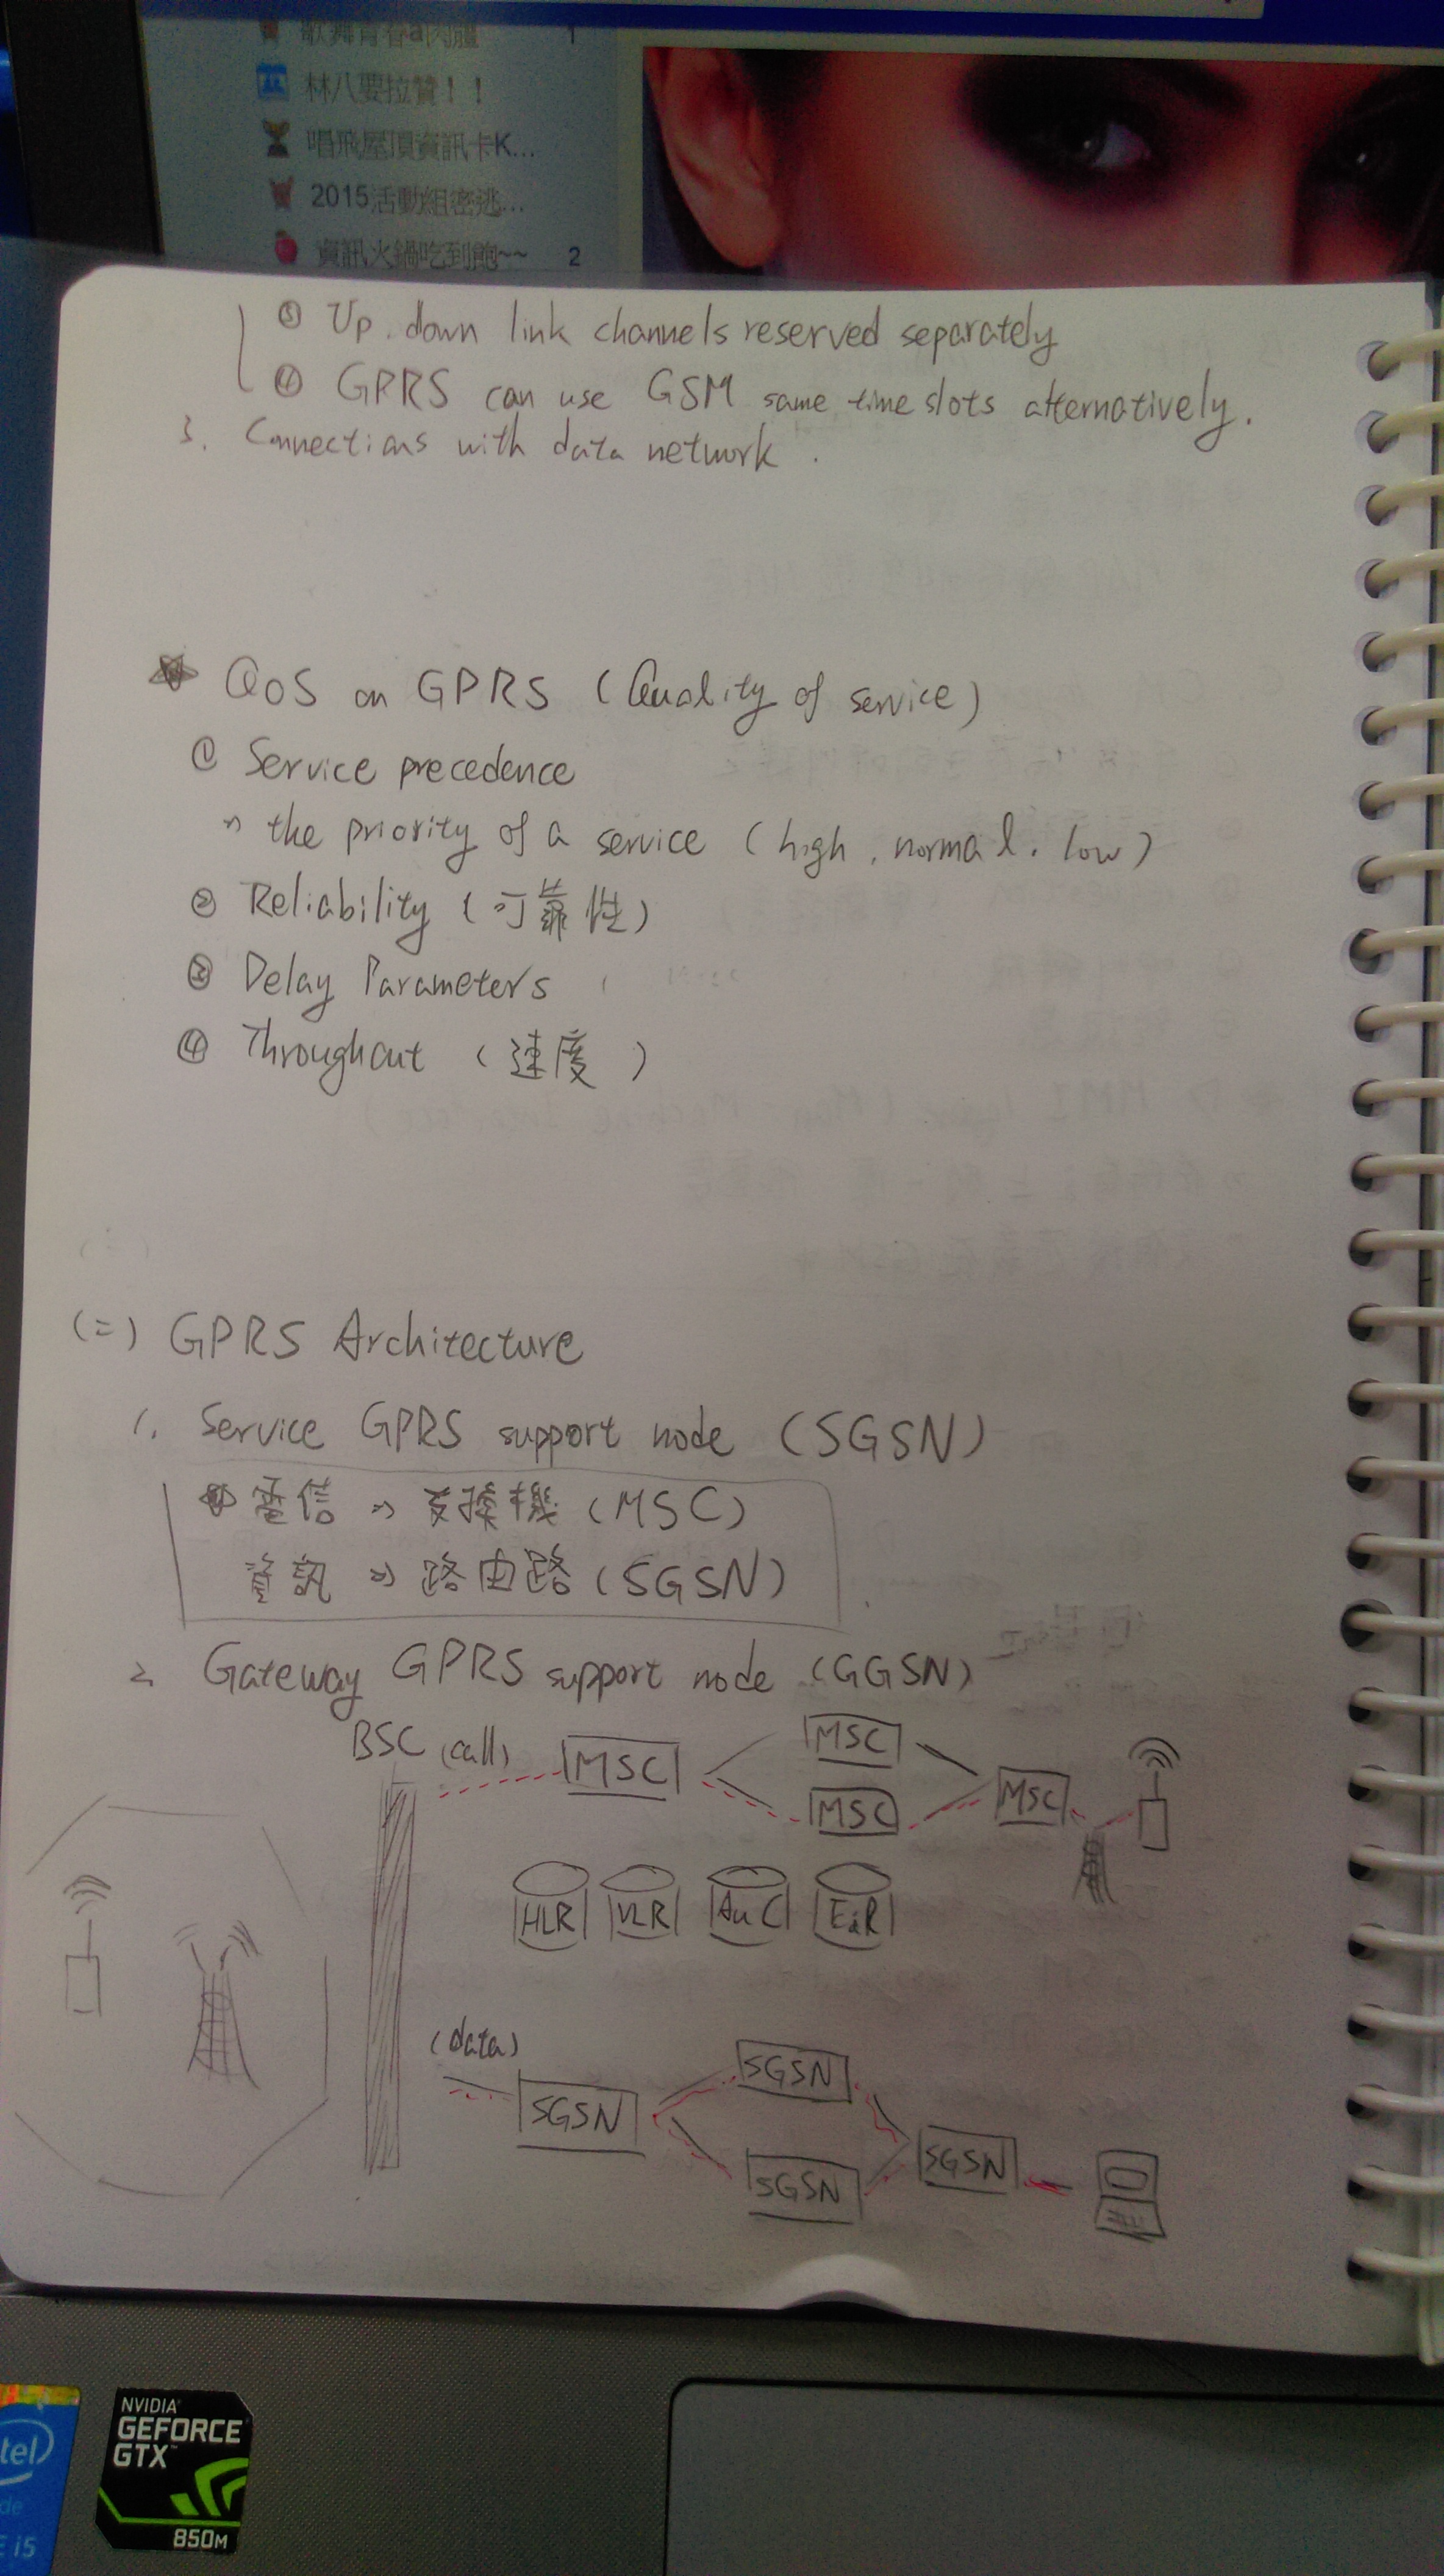 林八要拉贊！！
唱飛屋頂資訊卡K...
2015活動組密逃...
資訊火鍋吃到飽~~ 2
③ Up. down link channels reserved separately
④ GPRS can use GSM same time slots alternatively.
3. Connections with data network.
QoS on GPRS (Quality of service)
① Service precedence
→ the priority of a service (high, normal, low)
② Reliability (可靠性)
③ Delay Parameters
④ Throughout (速度)
(二) GPRS Architecture
1. Service GPRS support node (SGSN)
電信 → 交換機 (MSC)
資訊 → 路由路 (SGSN)
2. Gateway GPRS support node (GGSN)
BSC (call) MSC MSC
MSC MSC
HLR VLR AuC EiR
(data)
SGSN SGSN
SGSN SGSN
NVIDIA
GEFORCE
GTX
850M
i5